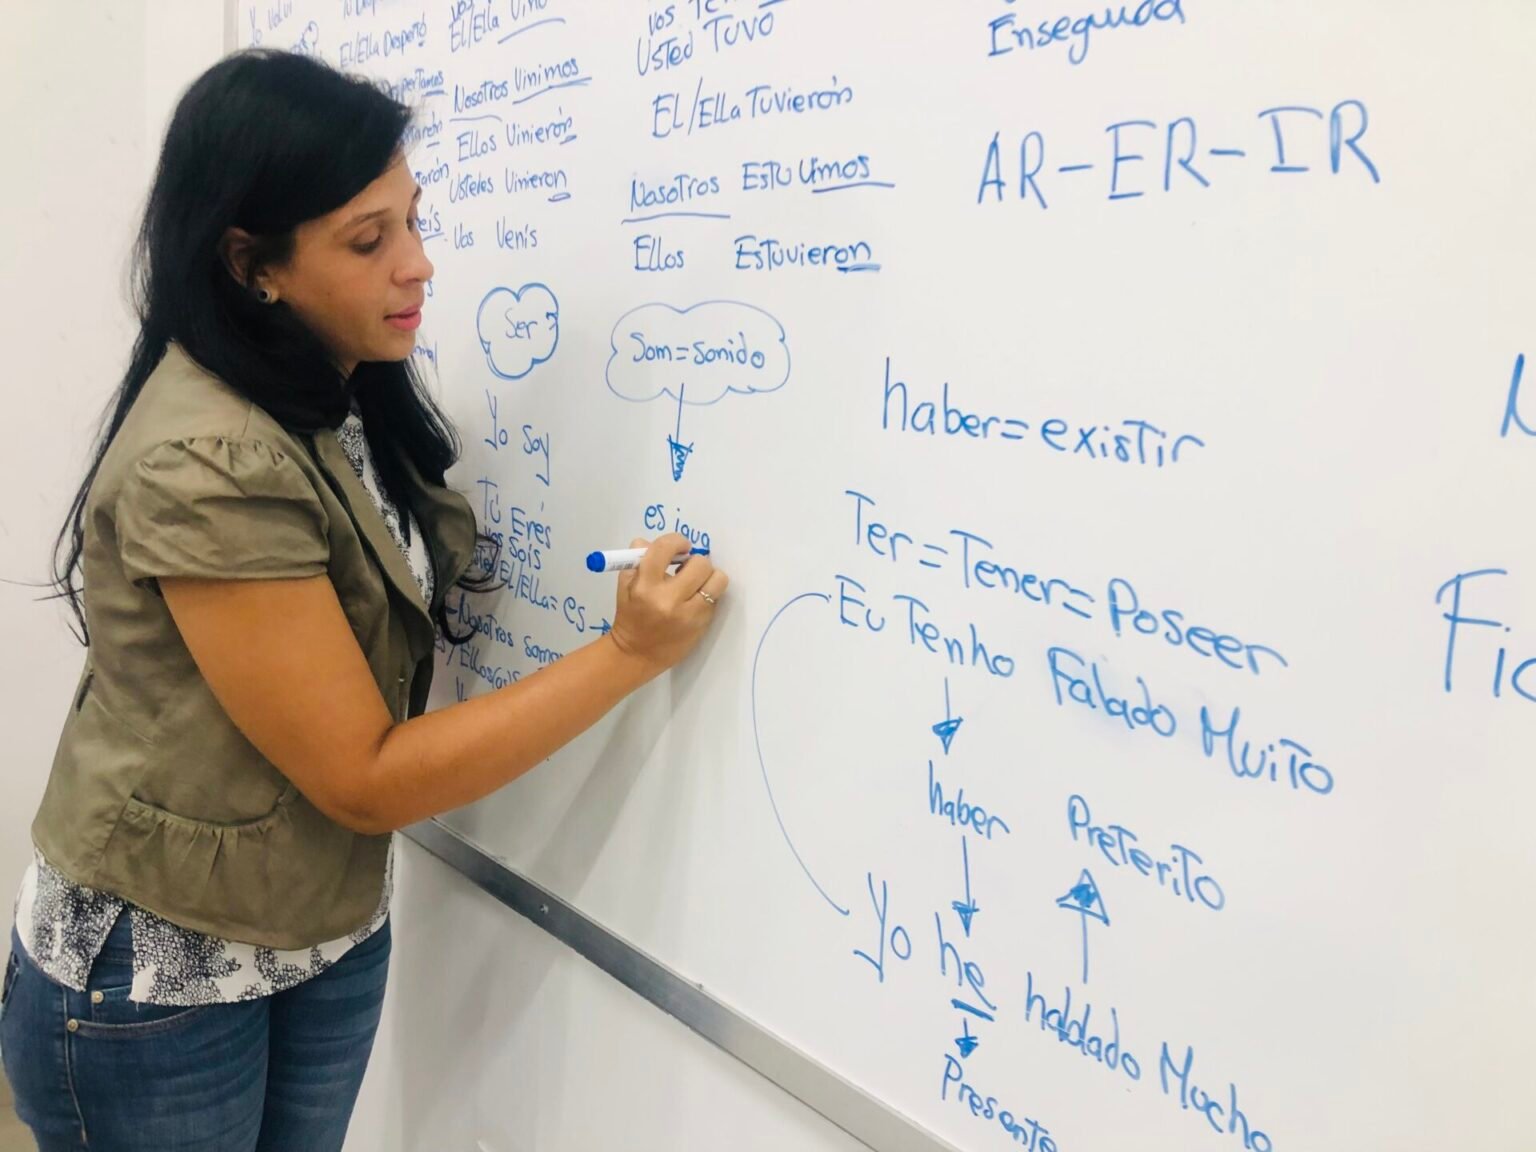 Yo Volví
El/Ella Despertó
El/Ella Vino
Nosotros Vinimos
Ellos Vinierón
Ustedes Vinieron
Vos Venís
Usted Tuvo
El/Ella Tuvierón
Nosotros Estuvimos
Ellos Estuvieron
Enseguida
AR-ER-IR
Ser
Yo Soy
Tú Erés
Vos Sois
El/Ella=es
Nosotros somos
Som=sonido
es igua
haber=existir
Ter=Tener=Poseer
Eu Tenho Falado Muito
haber
Preterito
Yo he hablado Mucho
Presente